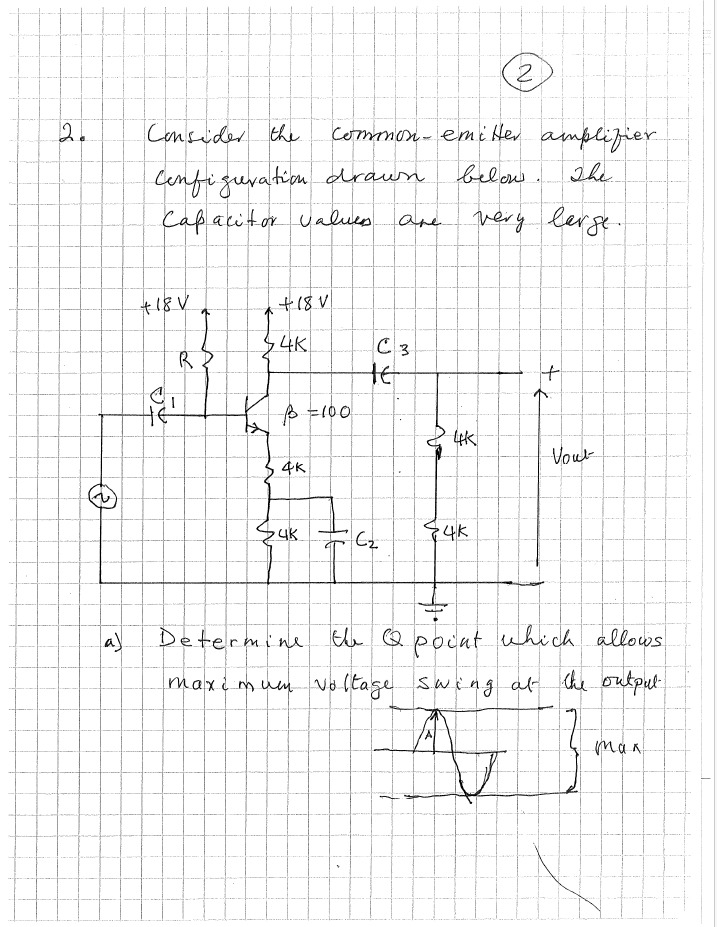 2
2. Consider the common-emitter amplifier
configuration drawn below. The
capacitor values are very large.
+18V +18V
R 4K C3
C1 +
β=100
4K Vout
4K
4K C2 4K
a) Determine the Q point which allows
maximum voltage swing at the output
A max